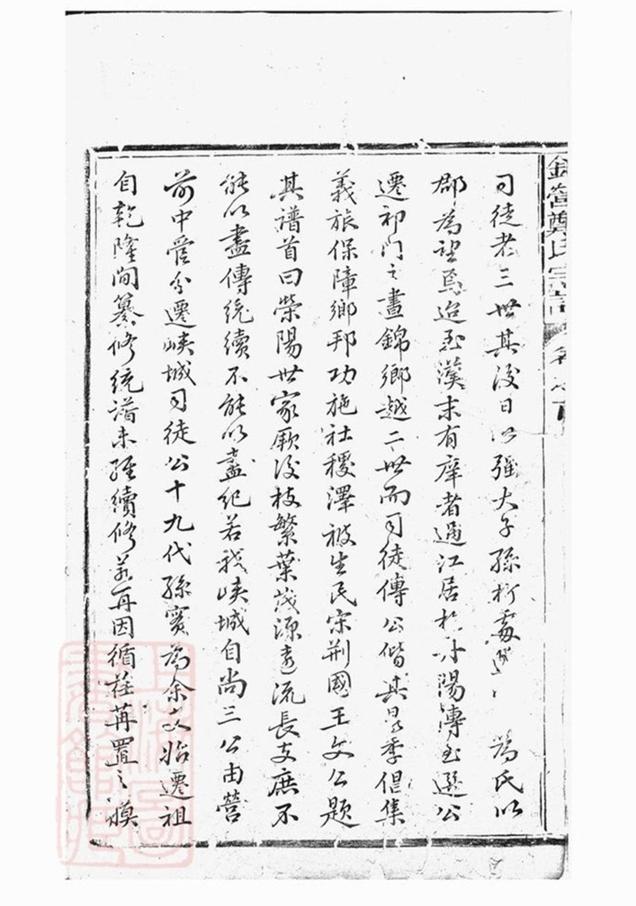 司徒者三世其後日以強大子孫析處 為氏以
郡為望焉迨至漢末有庠者過江居於丹陽傳至選公
遷祁門之晝錦鄉越二世而司徒傳公偕其昆季倡集
義旅保障鄉邦功施社稷澤被生民宋荊國王文公題
其譜首曰榮陽世家厥後枝繁葉茂源遠流長支庶不
能以盡傳統續不能以盡紀若我峽城自尚三公由營
前中營分遷峽城司徒公十九代孫實為余支始遷祖
自乾隆間纂修統譜未經續修若再因循荏苒置之漠
鄭氏宗譜